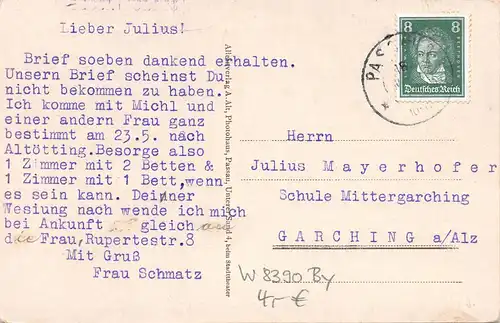 Lieber Julius!
Brief soeben dankend erhalten.
Unsern Brief scheinst Du
nicht bekommen zu haben.
Ich komme mit Michl und
einer andern Frau ganz
bestimmt am 23.5. nach
Altötting. Besorge also
1 Zimmer mit 2 Betten &
1 Zimmer mit 1 Bett, wenn
es sein kann. Deiner
Weisung nach wende ich mich
bei Ankunft gleich an
die Frau, Rupertestr.8
Mit Gruß
Frau Schmatz
Altöttingverlag A. Alt, Photohaus, Passau, Unterer Sand 4, beim Stadttheater
8 8
Deutsches Reich
PASS
Herrn
Julius Mayerhofer
Schule Mittergarching
GARCHING a/Alz
W 8390 By
4,- €